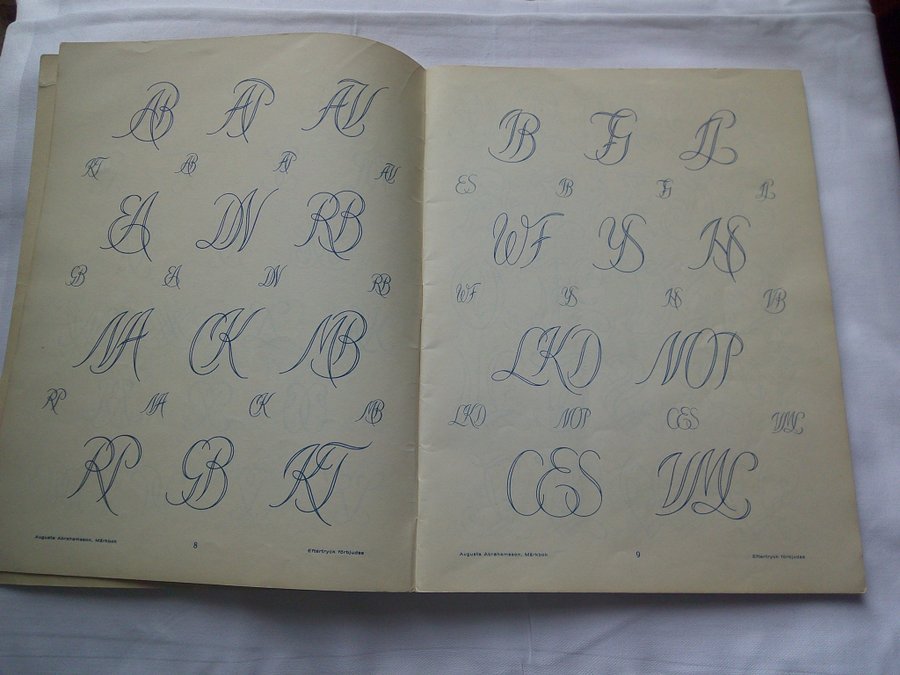 AB AP AV
KT AB AP AV
EA DN RB
GB EA DN RB
NA CK MB
RP NA CK MB
RP GB KT
Augusta Abrahamsson, Märkbok
8
Eftertryck förbjudes
IB FG IL
ES IB FG IL
WF YS HS
WF YS HS VB
LKD NOP
LKD NOP CES VML
CES VML
Augusta Abrahamsson, Märkbok
9
Eftertryck förbjudes